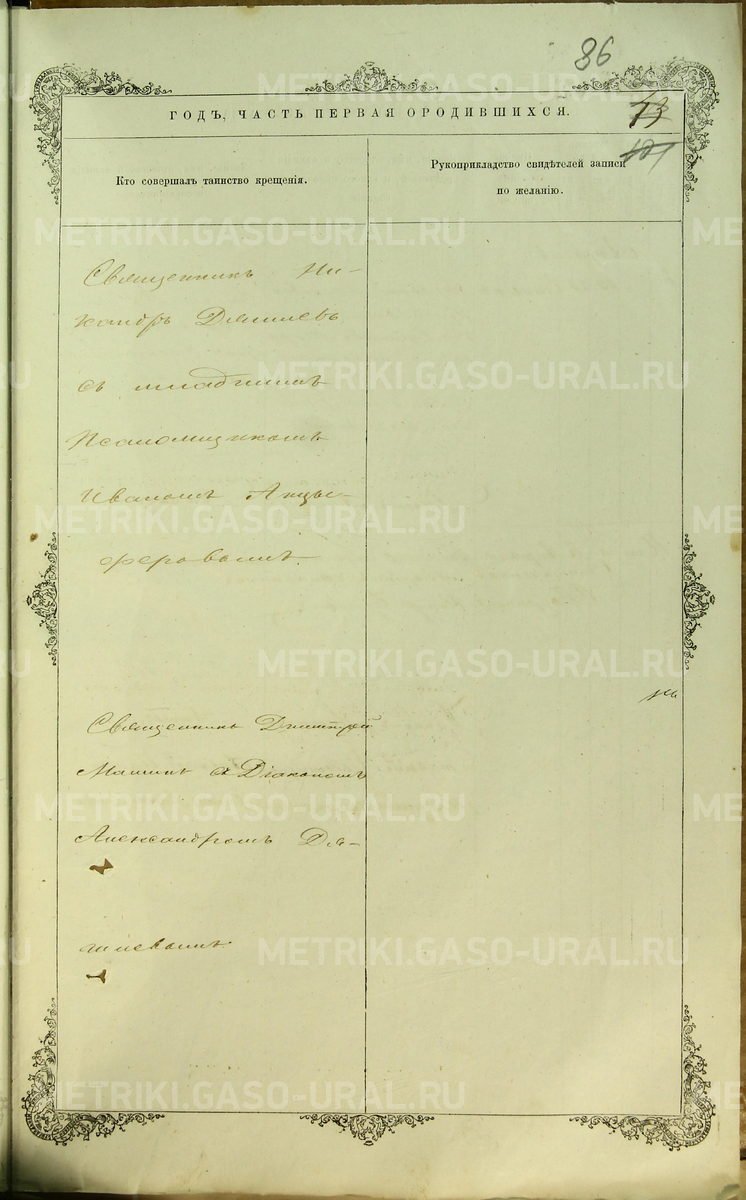 86
ГОДЪ, ЧАСТЬ ПЕРВАЯ ОРОДИВШИХСЯ.
73
Кто совершалъ таинство крещенія.
Рукоприкладство свидѣтелей записи
по желанію.
Священникъ Ни-
кандръ
съ младшимъ
Псаломщикомъ
Иваномъ Анцы-
феровымъ.
Священникъ Димитрій
Машинъ съ Діакономъ
Александромъ
METRIKI.GASO-URAL.RU